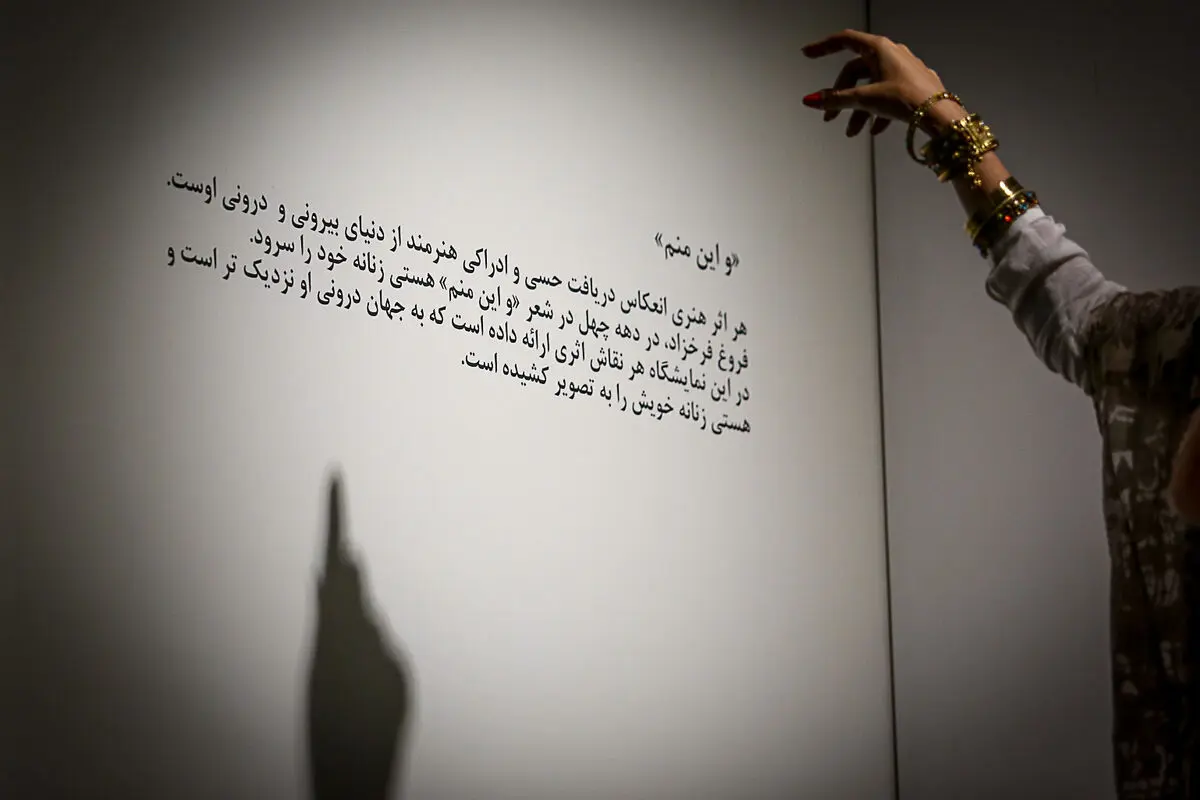 «و این منم»
هر اثر هنری انعکاس دریافت حسی و ادراکی هنرمند از دنیای بیرونی و درونی اوست.
فروغ فرخزاد، در دهه چهل در شعر «و این منم» هستی زنانه خود را سرود.
در این نمایشگاه هر نقاش اثری ارائه داده است که به جهان درونی او نزدیک تر است و
هستی زنانه خویش را به تصویر کشیده است.